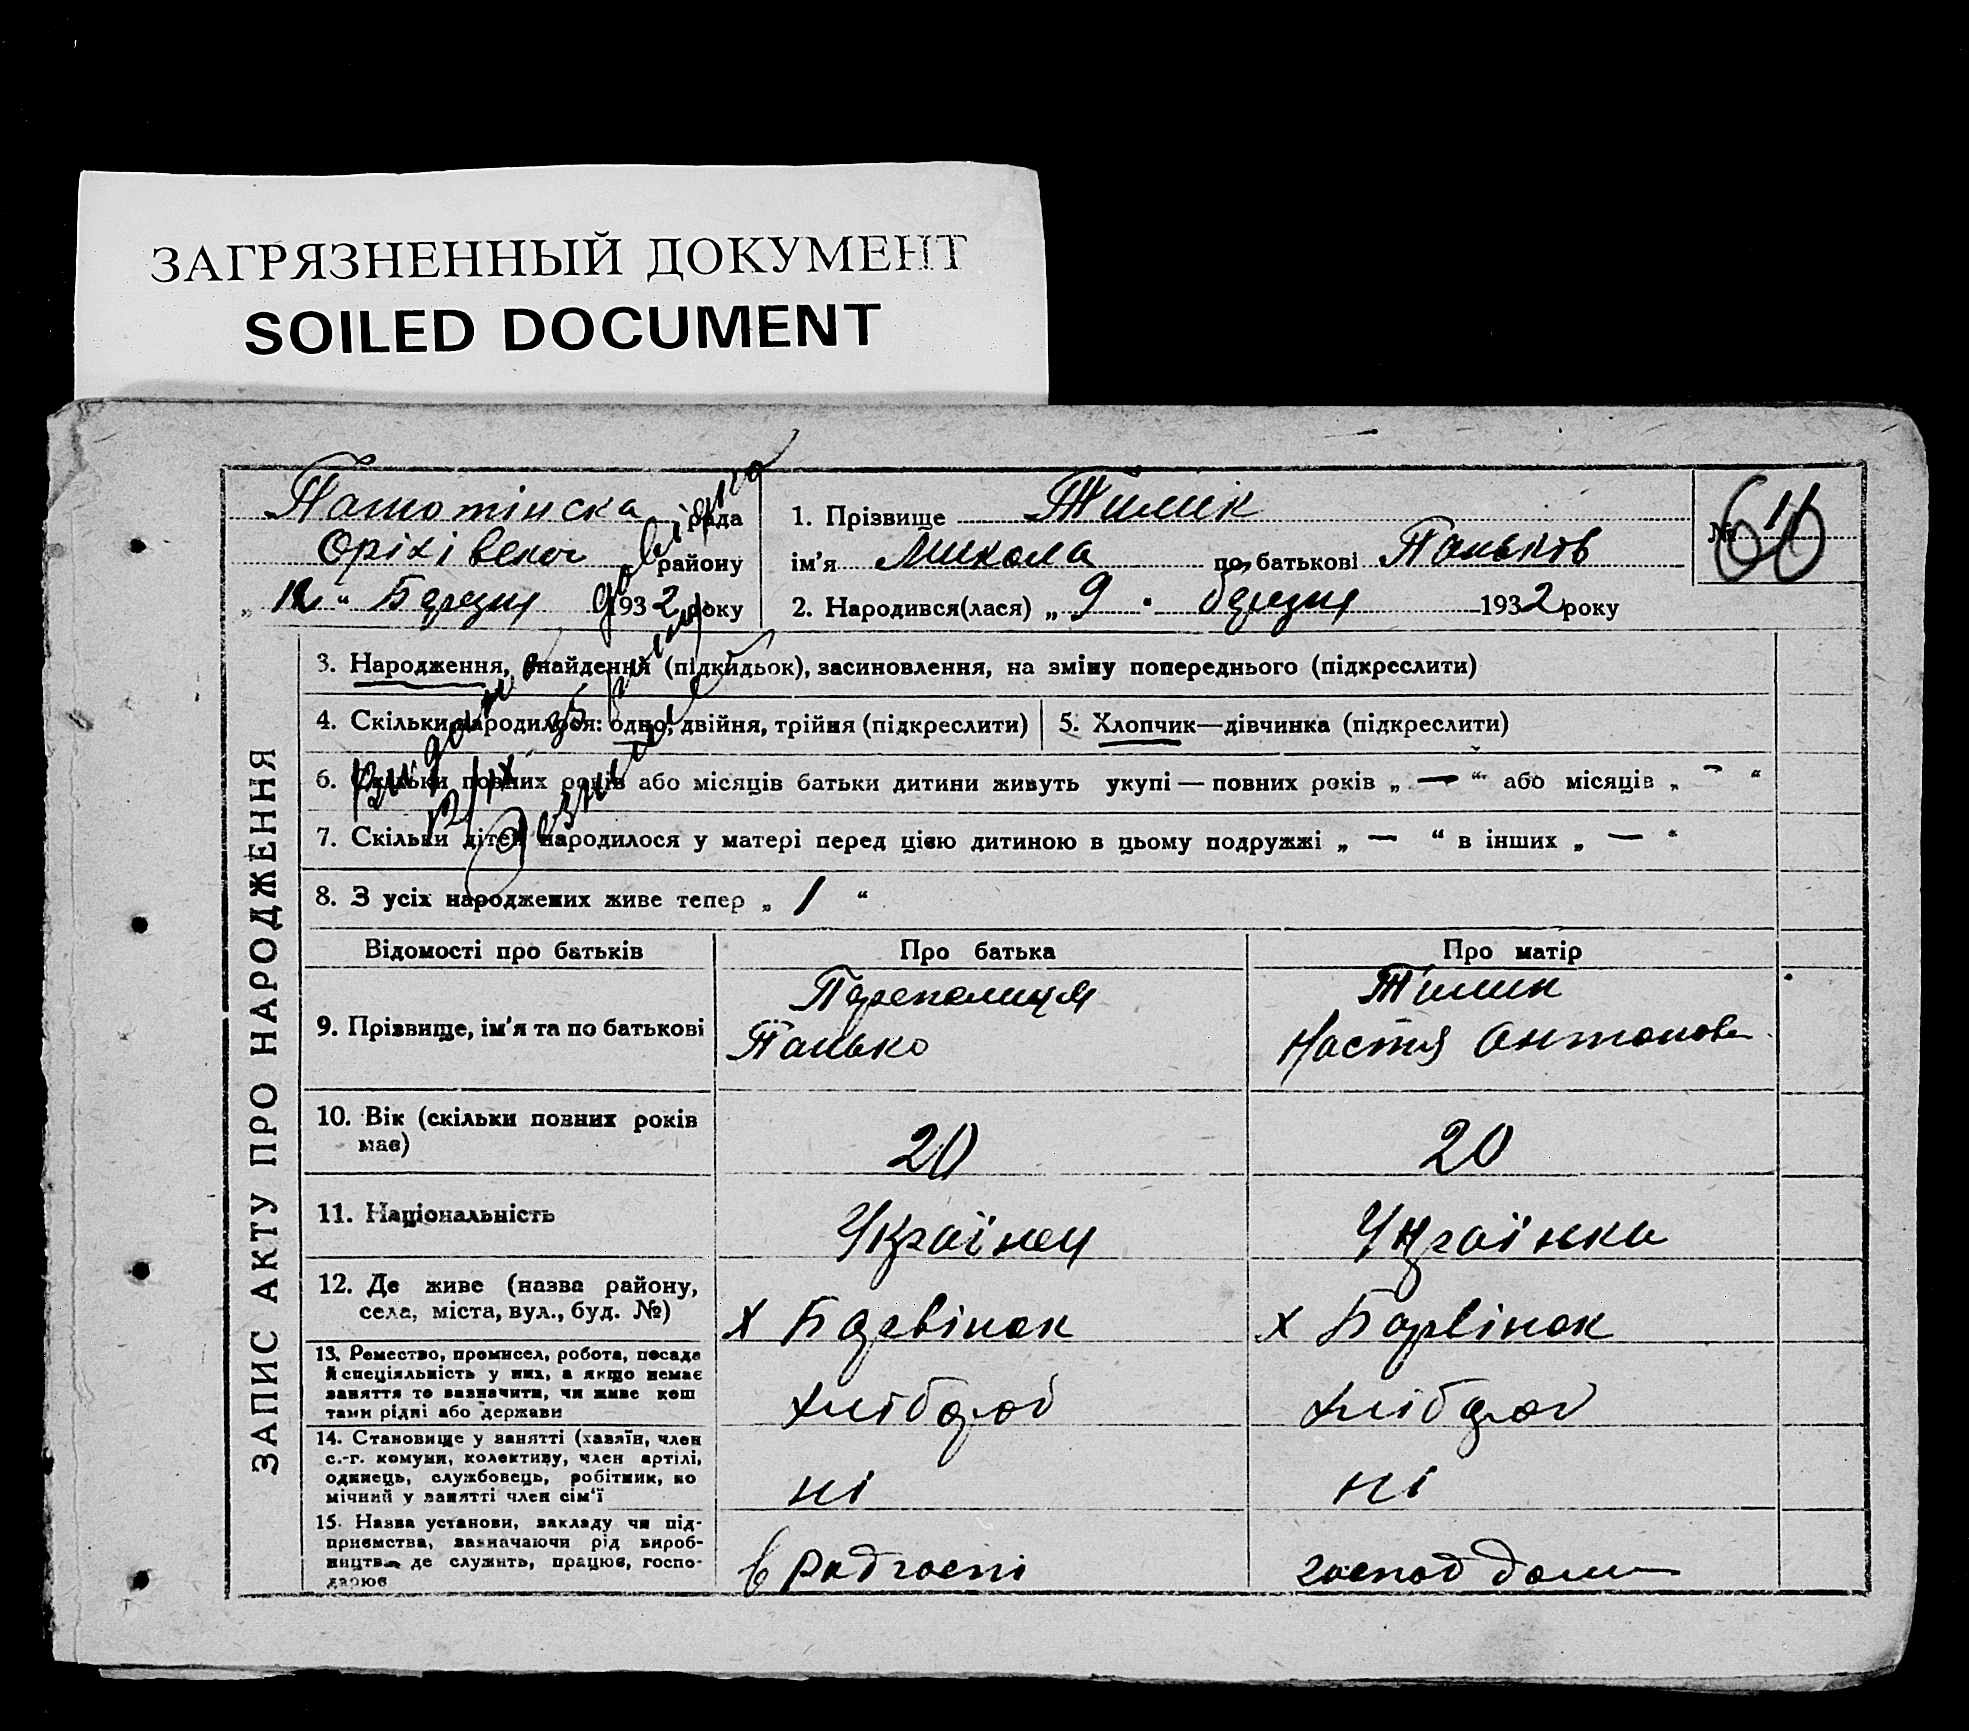 ЗАГРЯЗНЕННЫЙ ДОКУМЕНТ
SOILED DOCUMENT
рада
Оріхівського району
„ 12 “ Березня 1932 року
1. Прізвище Тимик
ім'я Микола по батькові Паньков
2. Народився(лася) „ 9 “ березня 1932 року
№ 11
60
ЗАПИС АКТУ ПРО НАРОДЖЕННЯ
3. Народження, знайдення (підкидьок), засиновлення, на зміну попереднього (підкреслити)
4. Скільки народилося: одно, двійня, трійня (підкреслити)
5. Хлопчик—дівчинка (підкреслити)
6. Скільки повних років або місяців батьки дитини живуть укупі — повних років „ — “ або місяців „ — “
7. Скільки дітей народилося у матері перед цією дитиною в цьому подружжі „ — “ в інших „ — “
8. З усіх народжених живе тепер „ 1 “
Видана довідка
Відомості про батьків
Про батька
Про матір
9. Прізвище, ім'я та по батькові
Перепелиця
Панько
Тимик
Настя Антонов
10. Вік (скільки повних років
має)
20
20
11. Національність
Українец
Українка
12. Де живе (назва району,
села, міста, вул., буд. №)
х Барвінок
х Барвінок
13. Ремество, промисел, робота, посада
й спеціяльність у них, а якщо немає
заняття то вазначити, чи живе кош
тами рідні або держави
хлібороб
хлібороб
14. Становище у занятті (хазяїн, член
с.-г. комуни, колективу, член артілі,
одинець, службовець, робітник, по
мічний у занятті член сім'ї
ні
ні
15. Назва установи, закладу чи під-
приємства, вазначаючи рід вироб-
ництва де служить, працює, госпо-
дарює
в радгоспі
господ дома